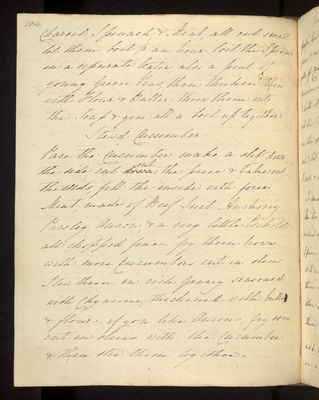 104
Charvel Spinach & Mint, all cut small
let them boil ½ an hour boil the Spinach
in a seperate Water also a pint of
young Green Peas, then thicken them
with Flour & Butter throw them into
the Soup & give all a boil up together
Stewd Cucumber
Pare the Cucumber make a slit down
the side cut down the piece & take out
the seeds fill the inside with force
Meat made of Beef Suet Anchovy
Parsley Onion & a very little
all chopped fine fry them brown
with more Cucumbers cut in slices
Stew them in rich Gravy seasoned
with Chyanne, thickened with butter
& flour if you like Onions, fry some
cut in slices with the Cucumber
& then stew them together.